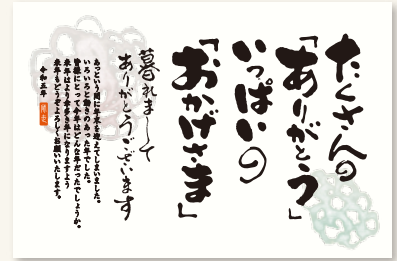 たくさんの
「ありがとう」
いっぱいの
「おかげさま」
暮れまして
ありがとうございます
あっという間に年末を迎えてしまいました。
いろいろと動きのあった年でした。
皆様にとって今年はどんな年だったでしょうか。
来年はより余多き年になりますよう
来年もどうぞよろしくお願いいたします。
令和五年